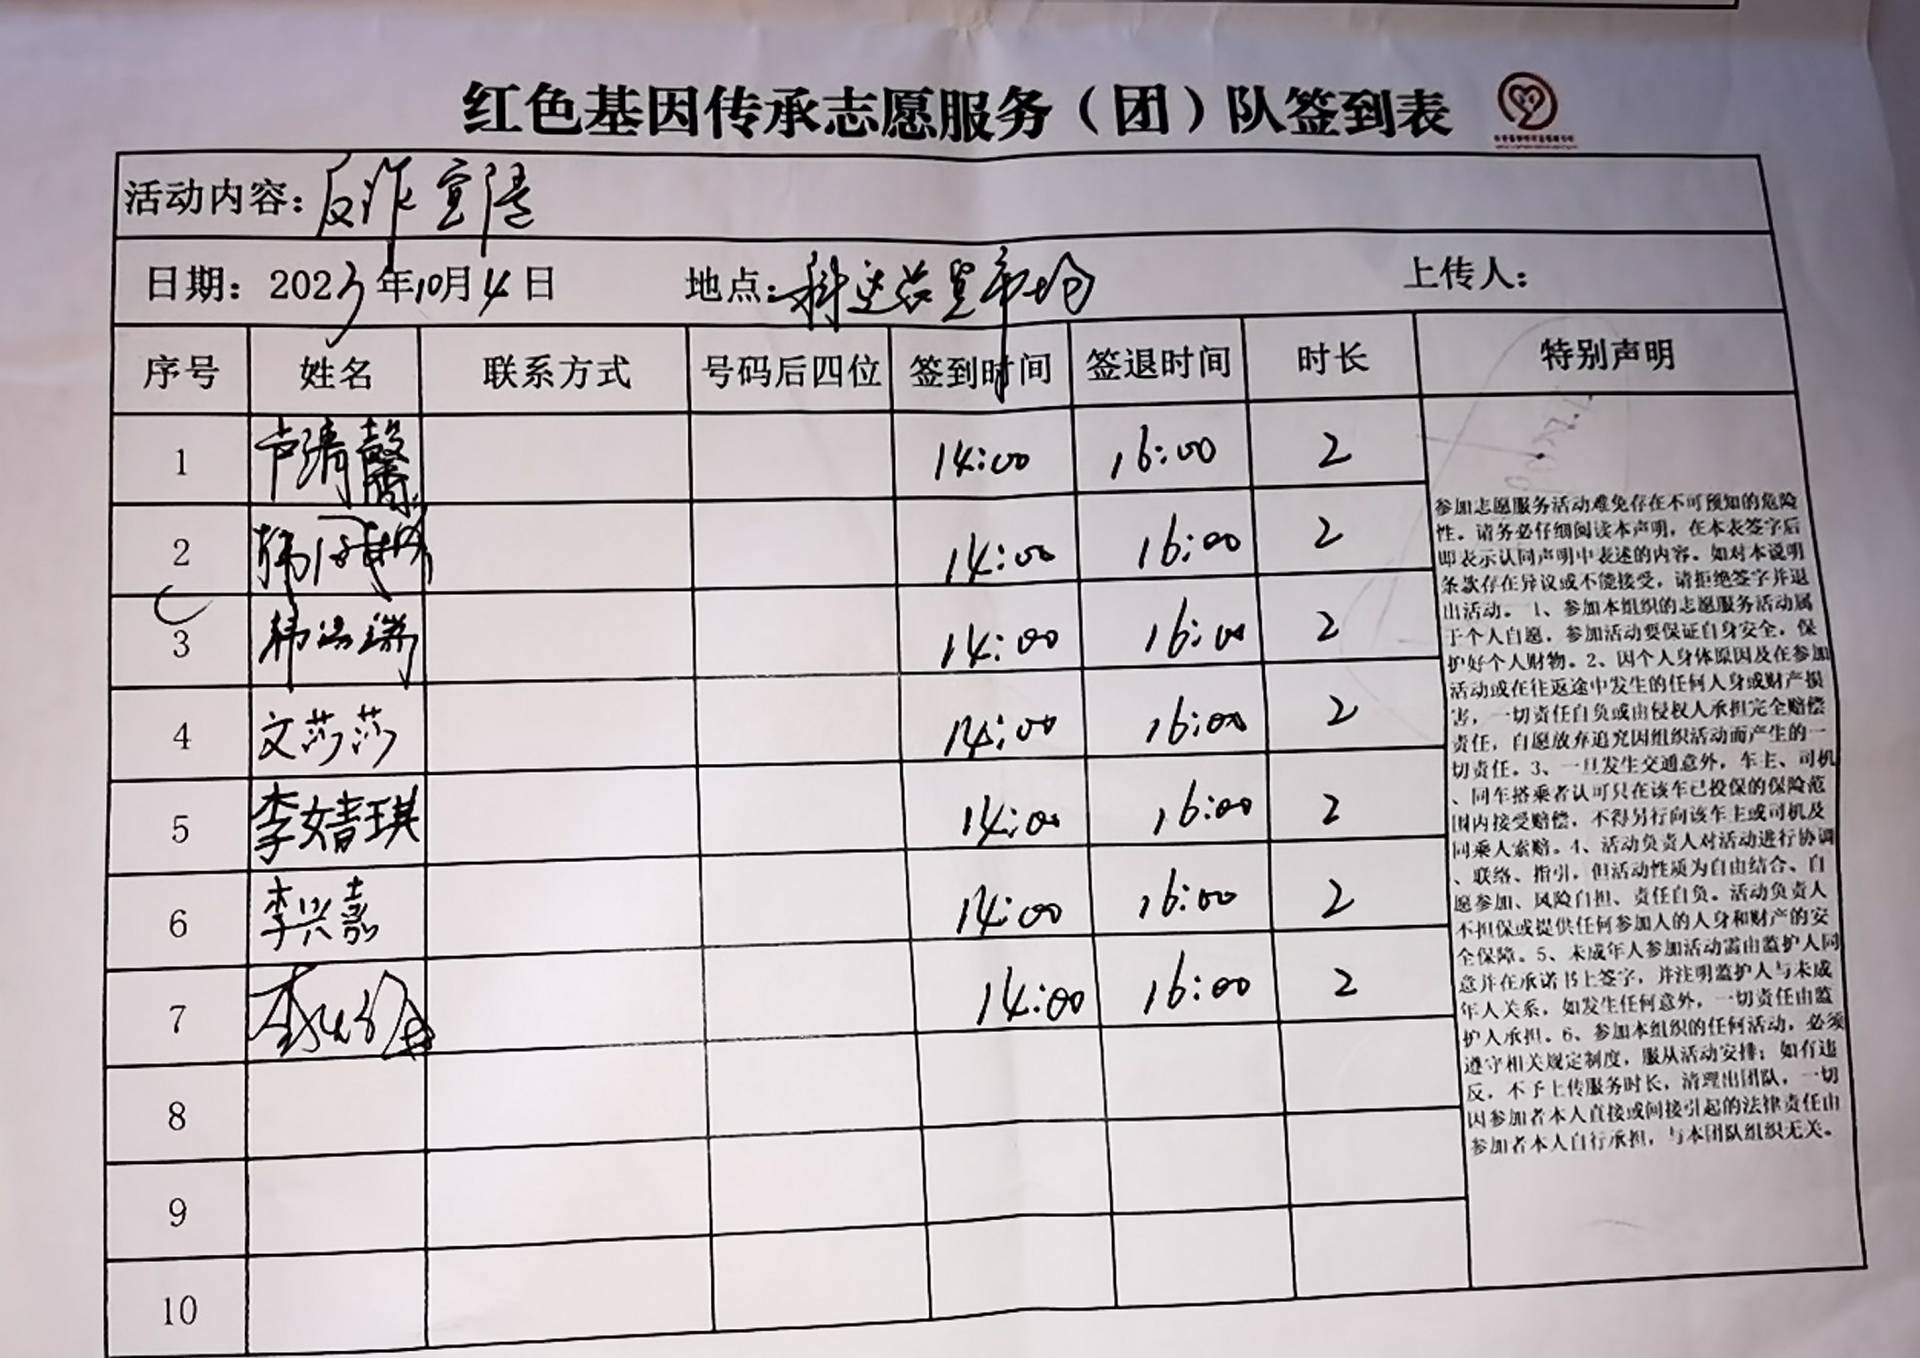 红色基因传承志愿服务（团）队签到表
活动内容：反诈宣传
日期：2023年10月4日 地点：科达商贸市场 上传人：
序号 姓名 联系方式 号码后四位 签到时间 签退时间 时长 特别声明
1 卢清馨 14:00 16:00 2
2 韩 14:00 16:00 2
3 韩瑞 14:00 16:00 2
4 文莎莎 14:00 16:00 2
5 李婧琪 14:00 16:00 2
6 李兴嘉 14:00 16:00 2
7 李 14:00 16:00 2
8
9
10
参加志愿服务活动难免存在不可预知的危险
性。请务必仔细阅读本声明，在本表签字后
即表示认同声明中表述的内容。如对本说明
条款存在异议或不能接受，请拒绝签字并退
出活动。1、参加本组织的志愿服务活动属
于个人自愿，参加活动要保证自身安全，保
护好个人财物。2、因个人身体原因及在参加
活动或在往返途中发生的任何人身或财产损
害，一切责任自负或由侵权人承担完全赔偿
责任，自愿放弃追究因组织活动而产生的一
切责任。3、一旦发生交通意外，车主、司机
、同车搭乘者认可只在该车已投保的保险范
围内接受赔偿，不得另行向该车主或司机及
同乘人索赔。4、活动负责人对活动进行协调
、联络、指引，但活动性质为自由结合、自
愿参加、风险自担、责任自负。活动负责人
不担保或提供任何参加人的人身和财产的安
全保障。5、未成年人参加活动需由监护人同
意并在承诺书上签字，并注明监护人与未成
年人关系，如发生任何意外，一切责任由监
护人承担。6、参加本组织的任何活动，必须
遵守相关规定制度，服从活动安排；如有违
反，不予上传服务时长，清理出团队，一切
因参加者本人直接或间接引起的法律责任由
参加者本人自行承担，与本团队组织无关。